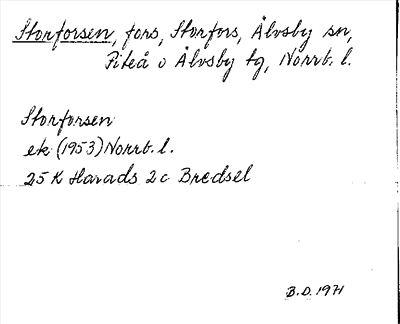 Storforsen, fors, Storfors, Älvsby sn,
Piteå o Älvsby tg, Norrb. l.
Storforsen
ek (1953) Norrb. l.
25 K Harads 2 c Bredsel
B.D. 1971